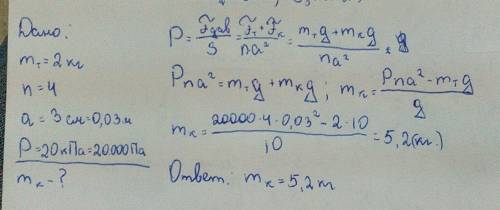 Дано:
mт = 2 кг
n = 4
a = 3 см = 0,03 м
P = 20 кПа = 20000 Па
mк - ?
P = F̃дав / S = (F̃т + F̃к) / na² = (mтg + mкg) / na²
Pna² = mтg + mкg ; mк = (Pna² - mтg) / g
mк = (20000 · 4 · 0,03² - 2 · 10) / 10 = 5,2 (кг.)
Ответ: mк = 5,2 кг